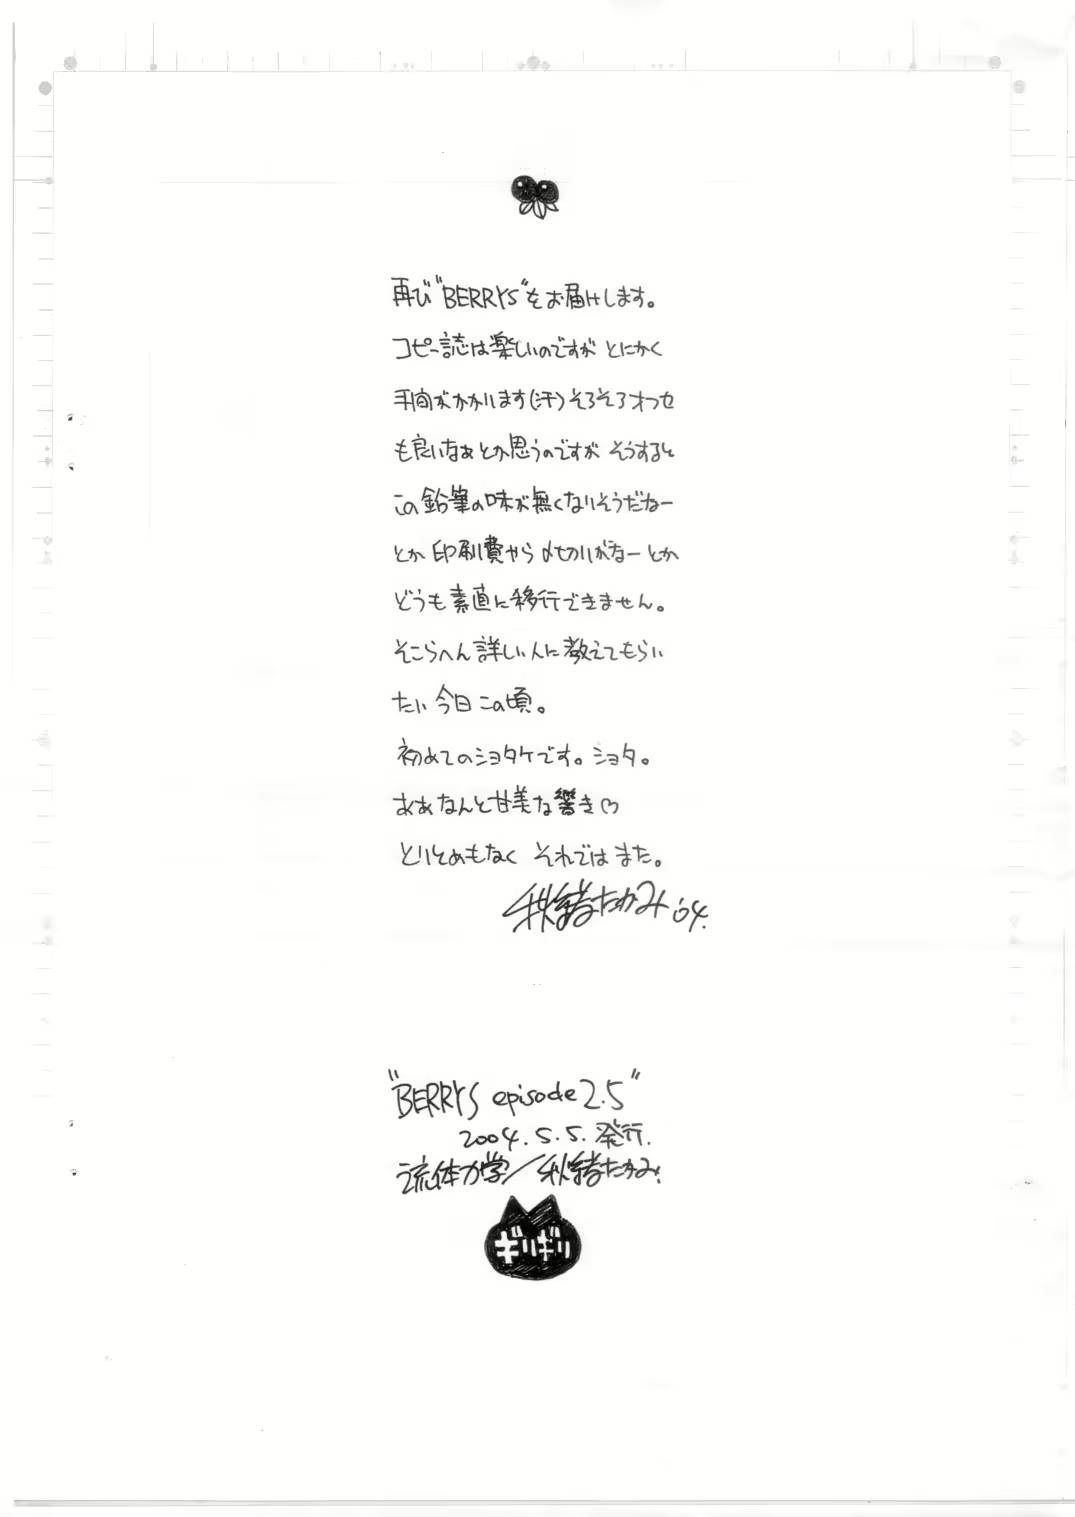 再び"BERRYS"をお届けします。
コピー誌は楽しいのですが とにかく
手間がかかります(汗)そろそろオフセ
も良いなぁとか思うのですが そうすると
この鉛筆の味が無くなりそうだねー
とか 印刷費やら〆切りがなー とか
どうも素直に移行できません。
そこらへん詳しい人に教えてもらい
たい 今日この頃。
初めてのショタケです。ショタ。
ああなんと甘美な響き♡
とりとめもなく それではまた。
秋緒たかみ '04.
"BERRYS episode2.5"
2004.5.5.発行.
流体力学/秋緒たかみ.
ギリギリ